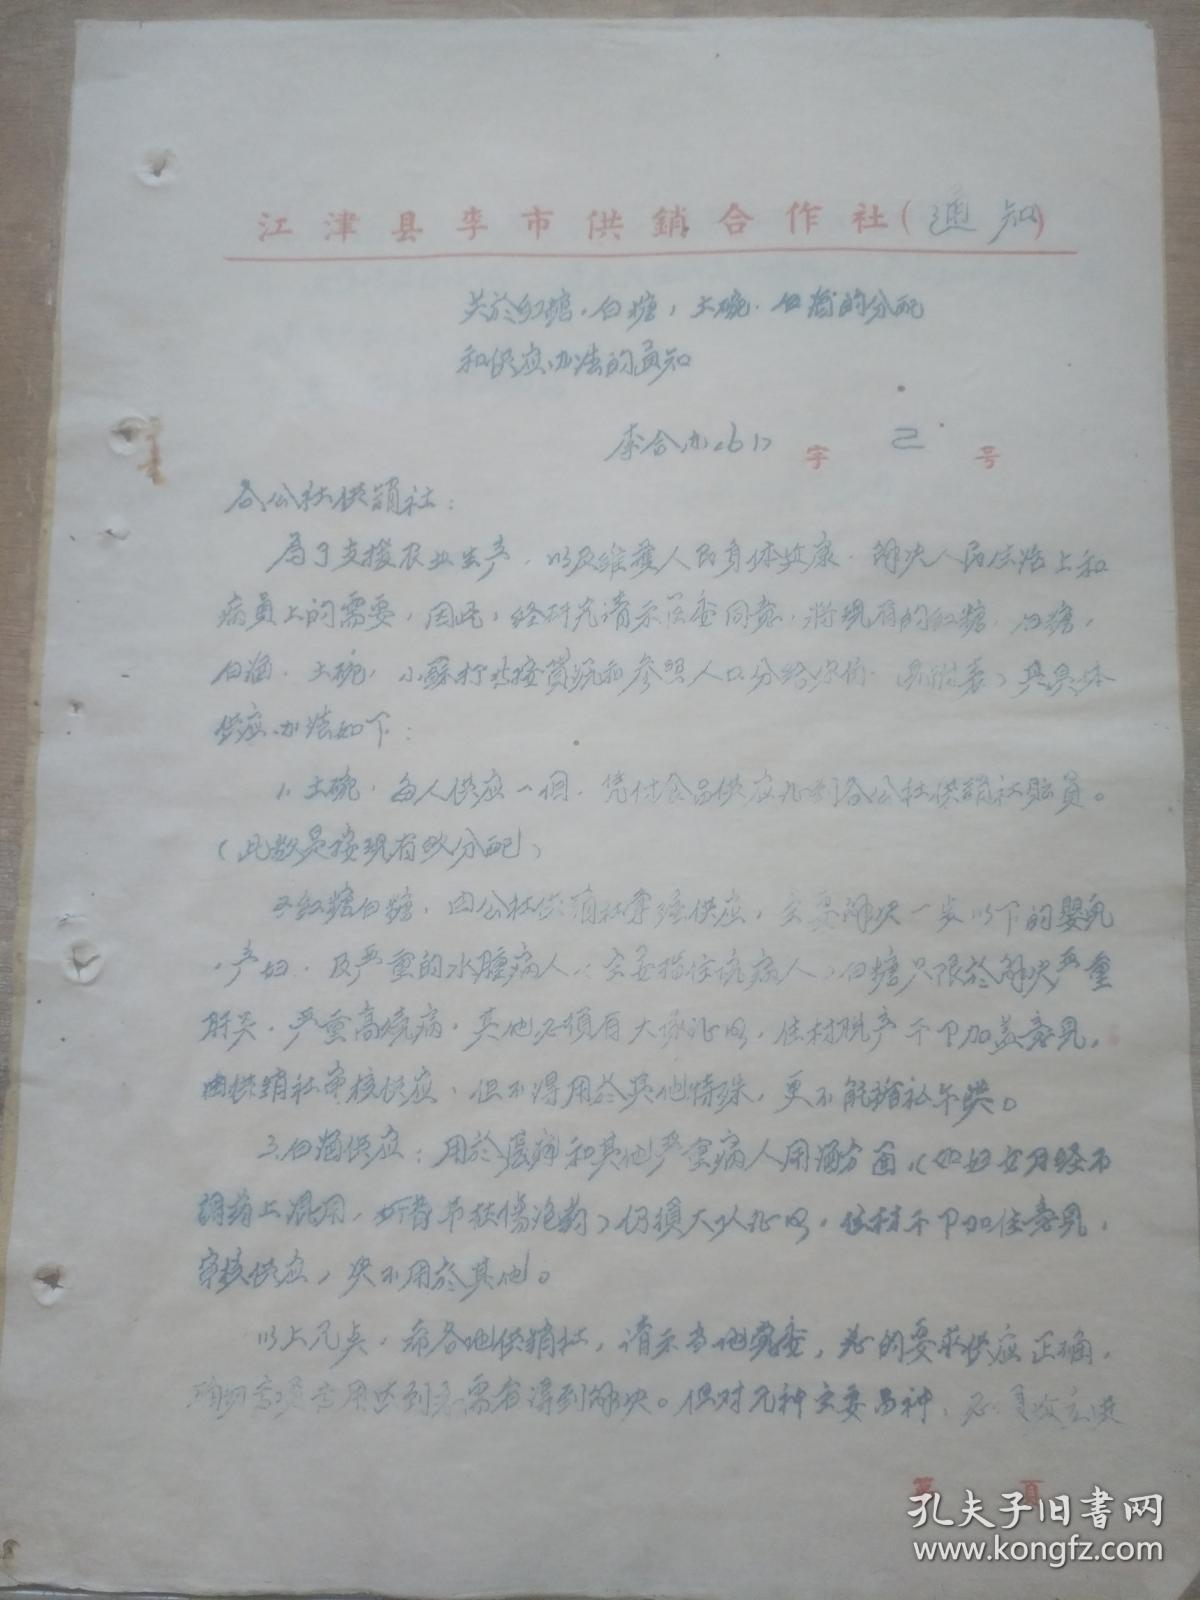 江津县李市供銷合作社(通知)
关於红糖,白糖,土碗.白酒的分配
和供应办法的通知
李合办(61)字 2 号
各公社供銷社:
為了支援农业生产,以及维護人民身体健康.解决人民生活上和
病員上的需要,因此,经研究請示区委同意,将現有的红糖,白糖,
白酒.土碗,小蘇打 按 和参照人口分给你们.(另附表)其具体
供应办法如下:
1.土碗.每人供应一個.凭 食品供应 到各公社供銷社购買。
(此数是按現有数分配)
2.红糖白糖.由公社供销社掌握供应,主要解决一岁以下的嬰兒
,产妇.及严重的水腫病人.(主要指住院病人)白糖只限於解决严重
肝炎.严重高烧病,其他必須有大队证明,住村脱产干部加盖意見,
由供銷社审核供应.但不得用於其他特殊,更不能
3.白酒供应:用於医药和其他严重病人用酒方面,(如妇女月经不
調 上 用, 傷泡药)仍須大队证明,住村干部加住意見,
审核供应,决不用於其他。
以上几点,希各地供銷社,請示当地党委, 的要求供应正确,
专項专用 到 需者得到解决。但对几种主要品种,必
第 頁
孔夫子旧书网
www.kongfz.com